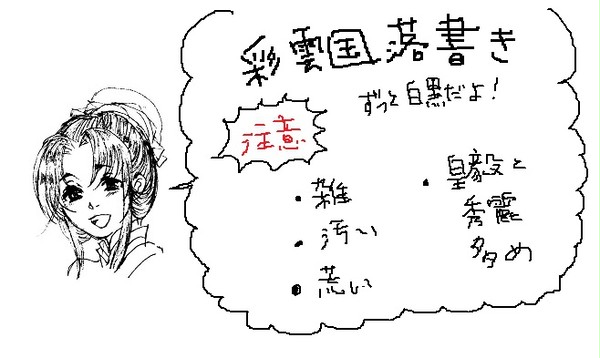 彩雲国落書き
ずっと白黒だよ！
注意
・雑
・汚い
・荒い
・皇毅と
秀麗
多め